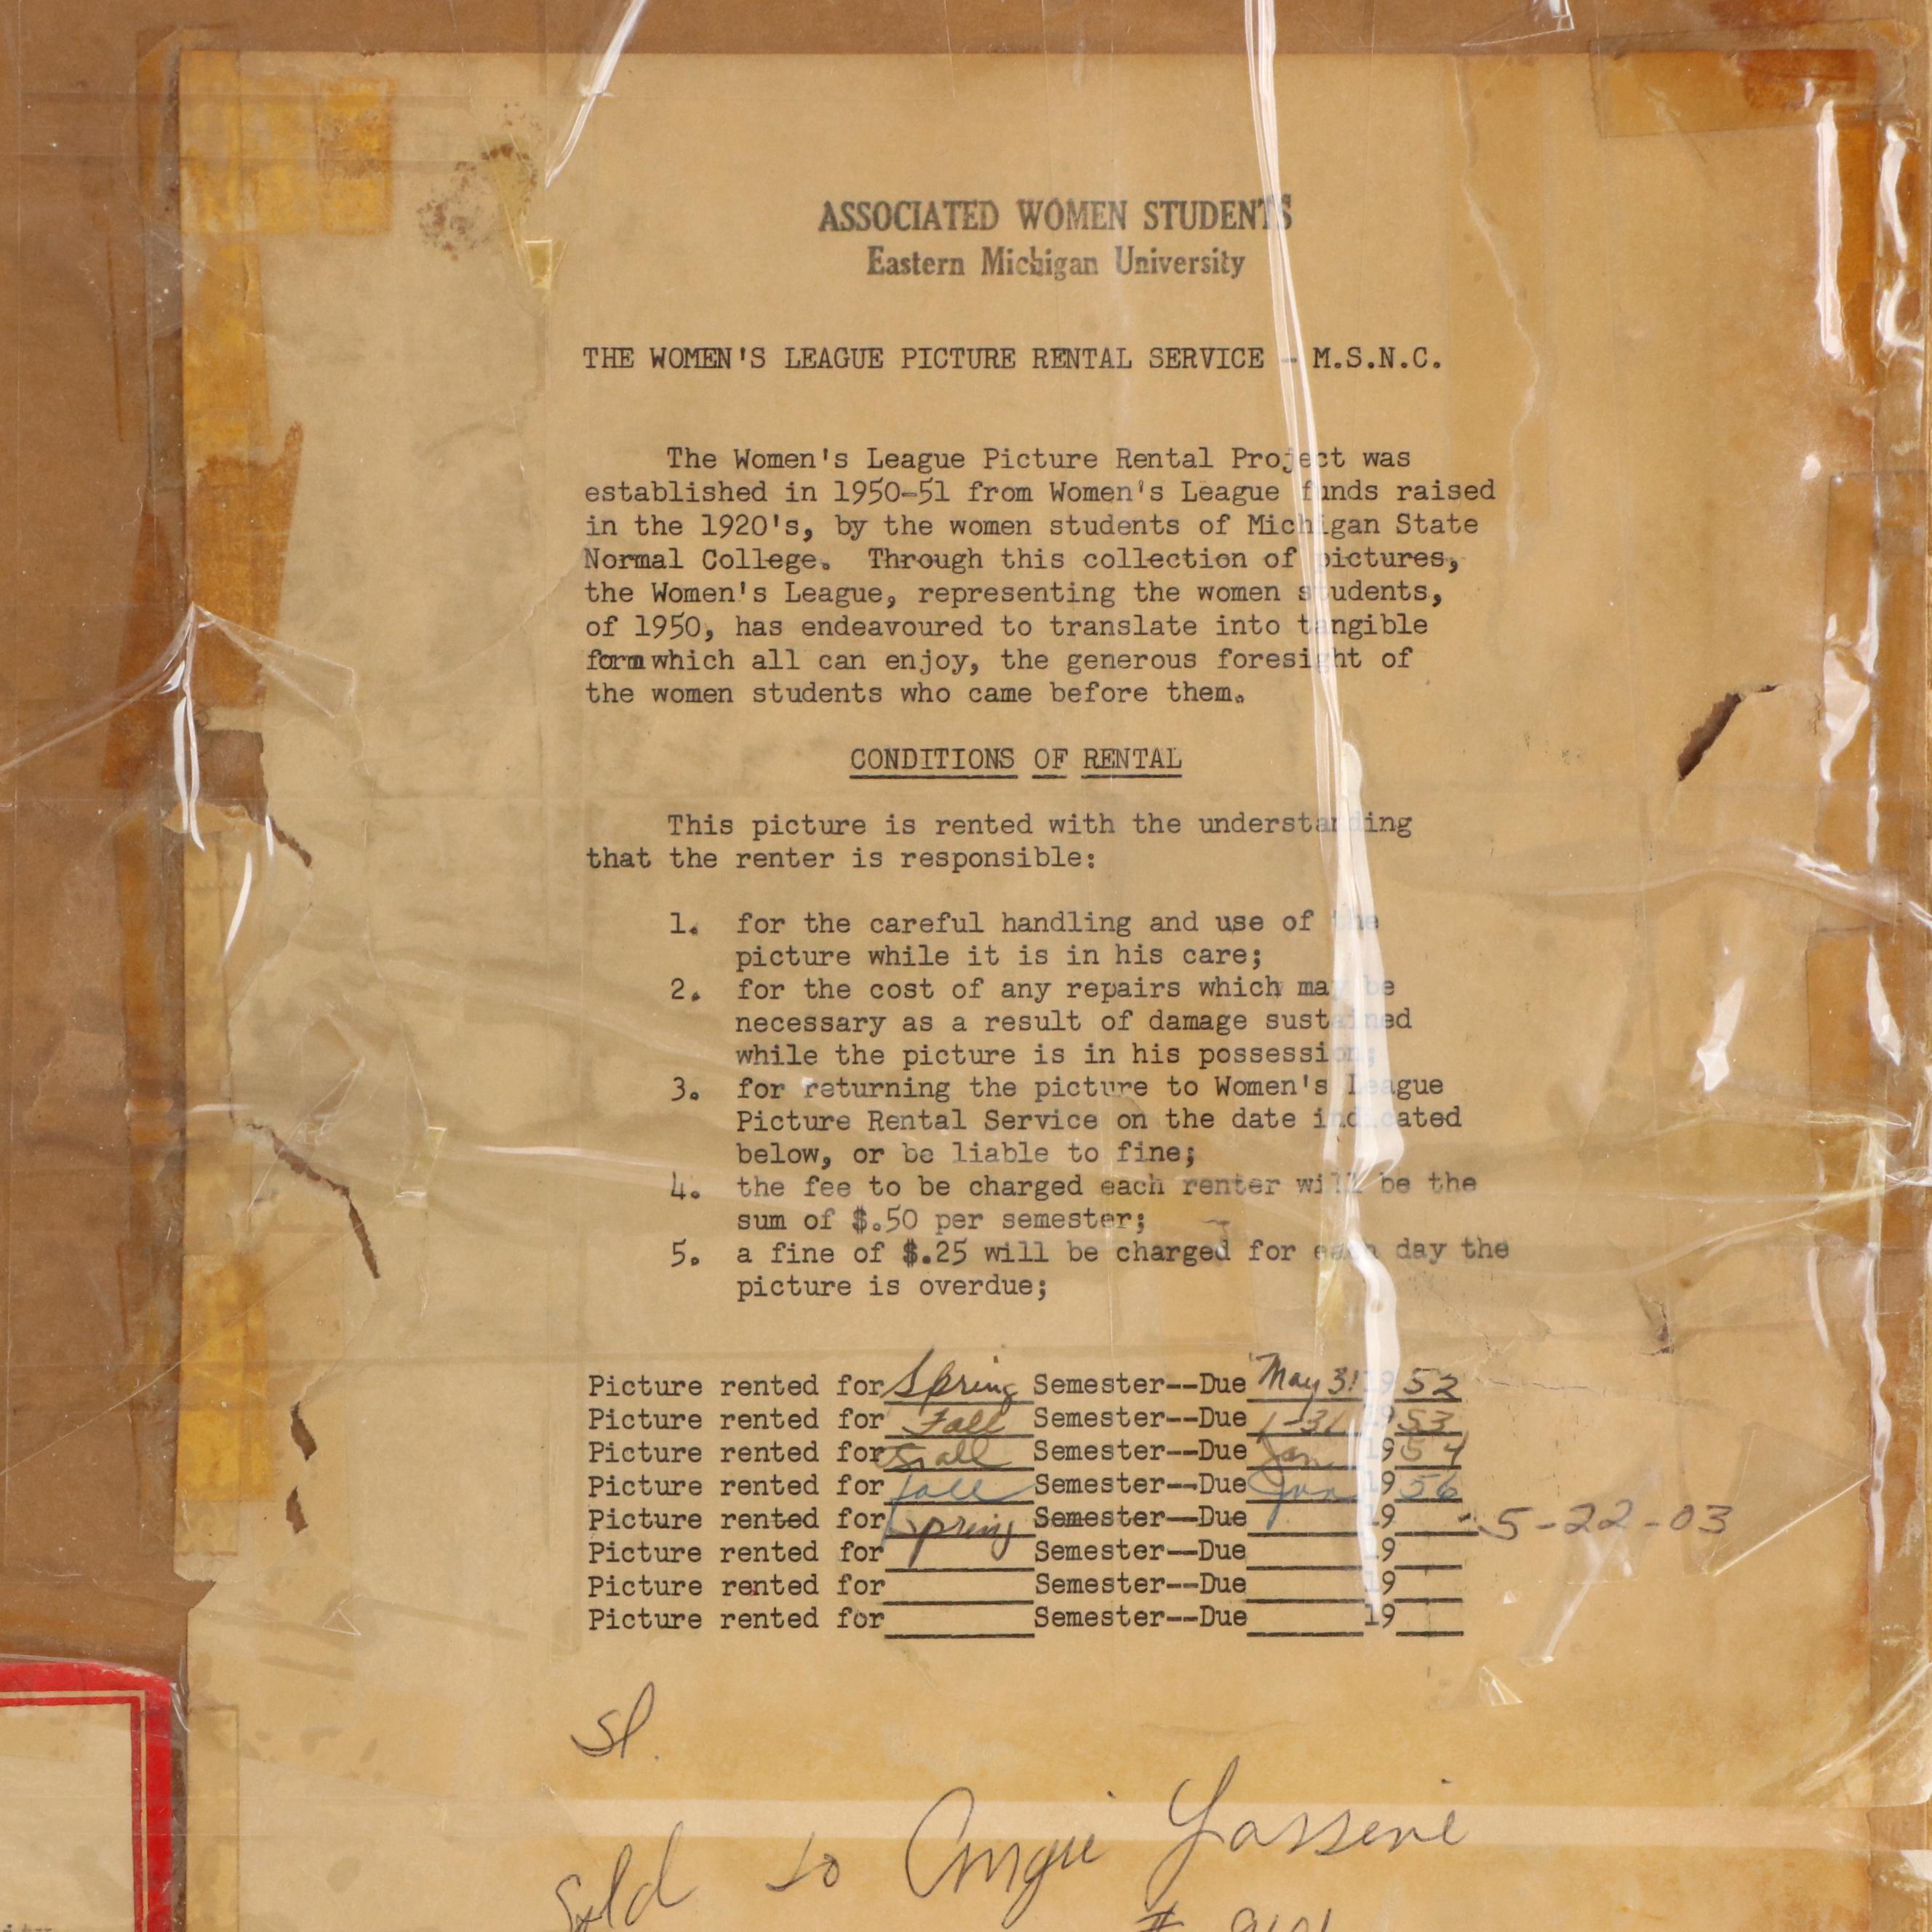 ASSOCIATED WOMEN STUDENTS
Eastern Michigan University
THE WOMEN'S LEAGUE PICTURE RENTAL SERVICE - M.S.N.C.
The Women's League Picture Rental Project was
established in 1950-51 from Women's League funds raised
in the 1920's, by the women students of Michigan State
Normal College. Through this collection of pictures,
the Women's League, representing the women students,
of 1950, has endeavoured to translate into tangible
form which all can enjoy, the generous foresight of
the women students who came before them.
CONDITIONS OF RENTAL
This picture is rented with the understanding
that the renter is responsible:
1. for the careful handling and use of the
picture while it is in his care;
2. for the cost of any repairs which may be
necessary as a result of damage sustained
while the picture is in his possession;
3. for returning the picture to Women's League
Picture Rental Service on the date indicated
below, or be liable to fine;
4. the fee to be charged each renter will be the
sum of $.50 per semester;
5. a fine of $.25 will be charged for each day the
picture is overdue;
Picture rented for Spring Semester--Due May 31 19 52
Picture rented for Fall Semester--Due 1-31 19 53
Picture rented for Fall Semester--Due Jan 19 54
Picture rented for fall Semester--Due Jan 19 56
Picture rented for Spring Semester--Due 19 5-22-03
Picture rented for Semester--Due 19
Picture rented for Semester--Due 19
Picture rented for Semester--Due 19
Sl.
Sold to Angie